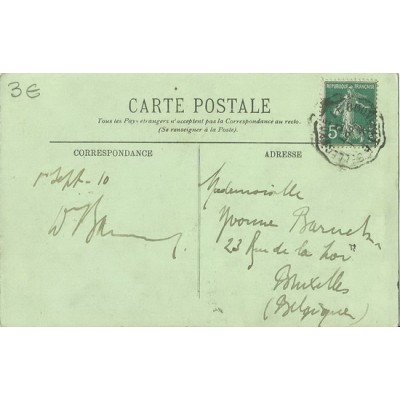 3€
CARTE POSTALE
Tous les Pays étrangers n'acceptent pas la Correspondance au recto.
(Se renseigner à la Poste).
CORRESPONDANCE
ADRESSE
RÉPUBLIQUE FRANÇAISE
5c
1er Sept-10
Mademoiselle
Yvonne
23 Rue de la Loi
Bruxelles
(Belgique)